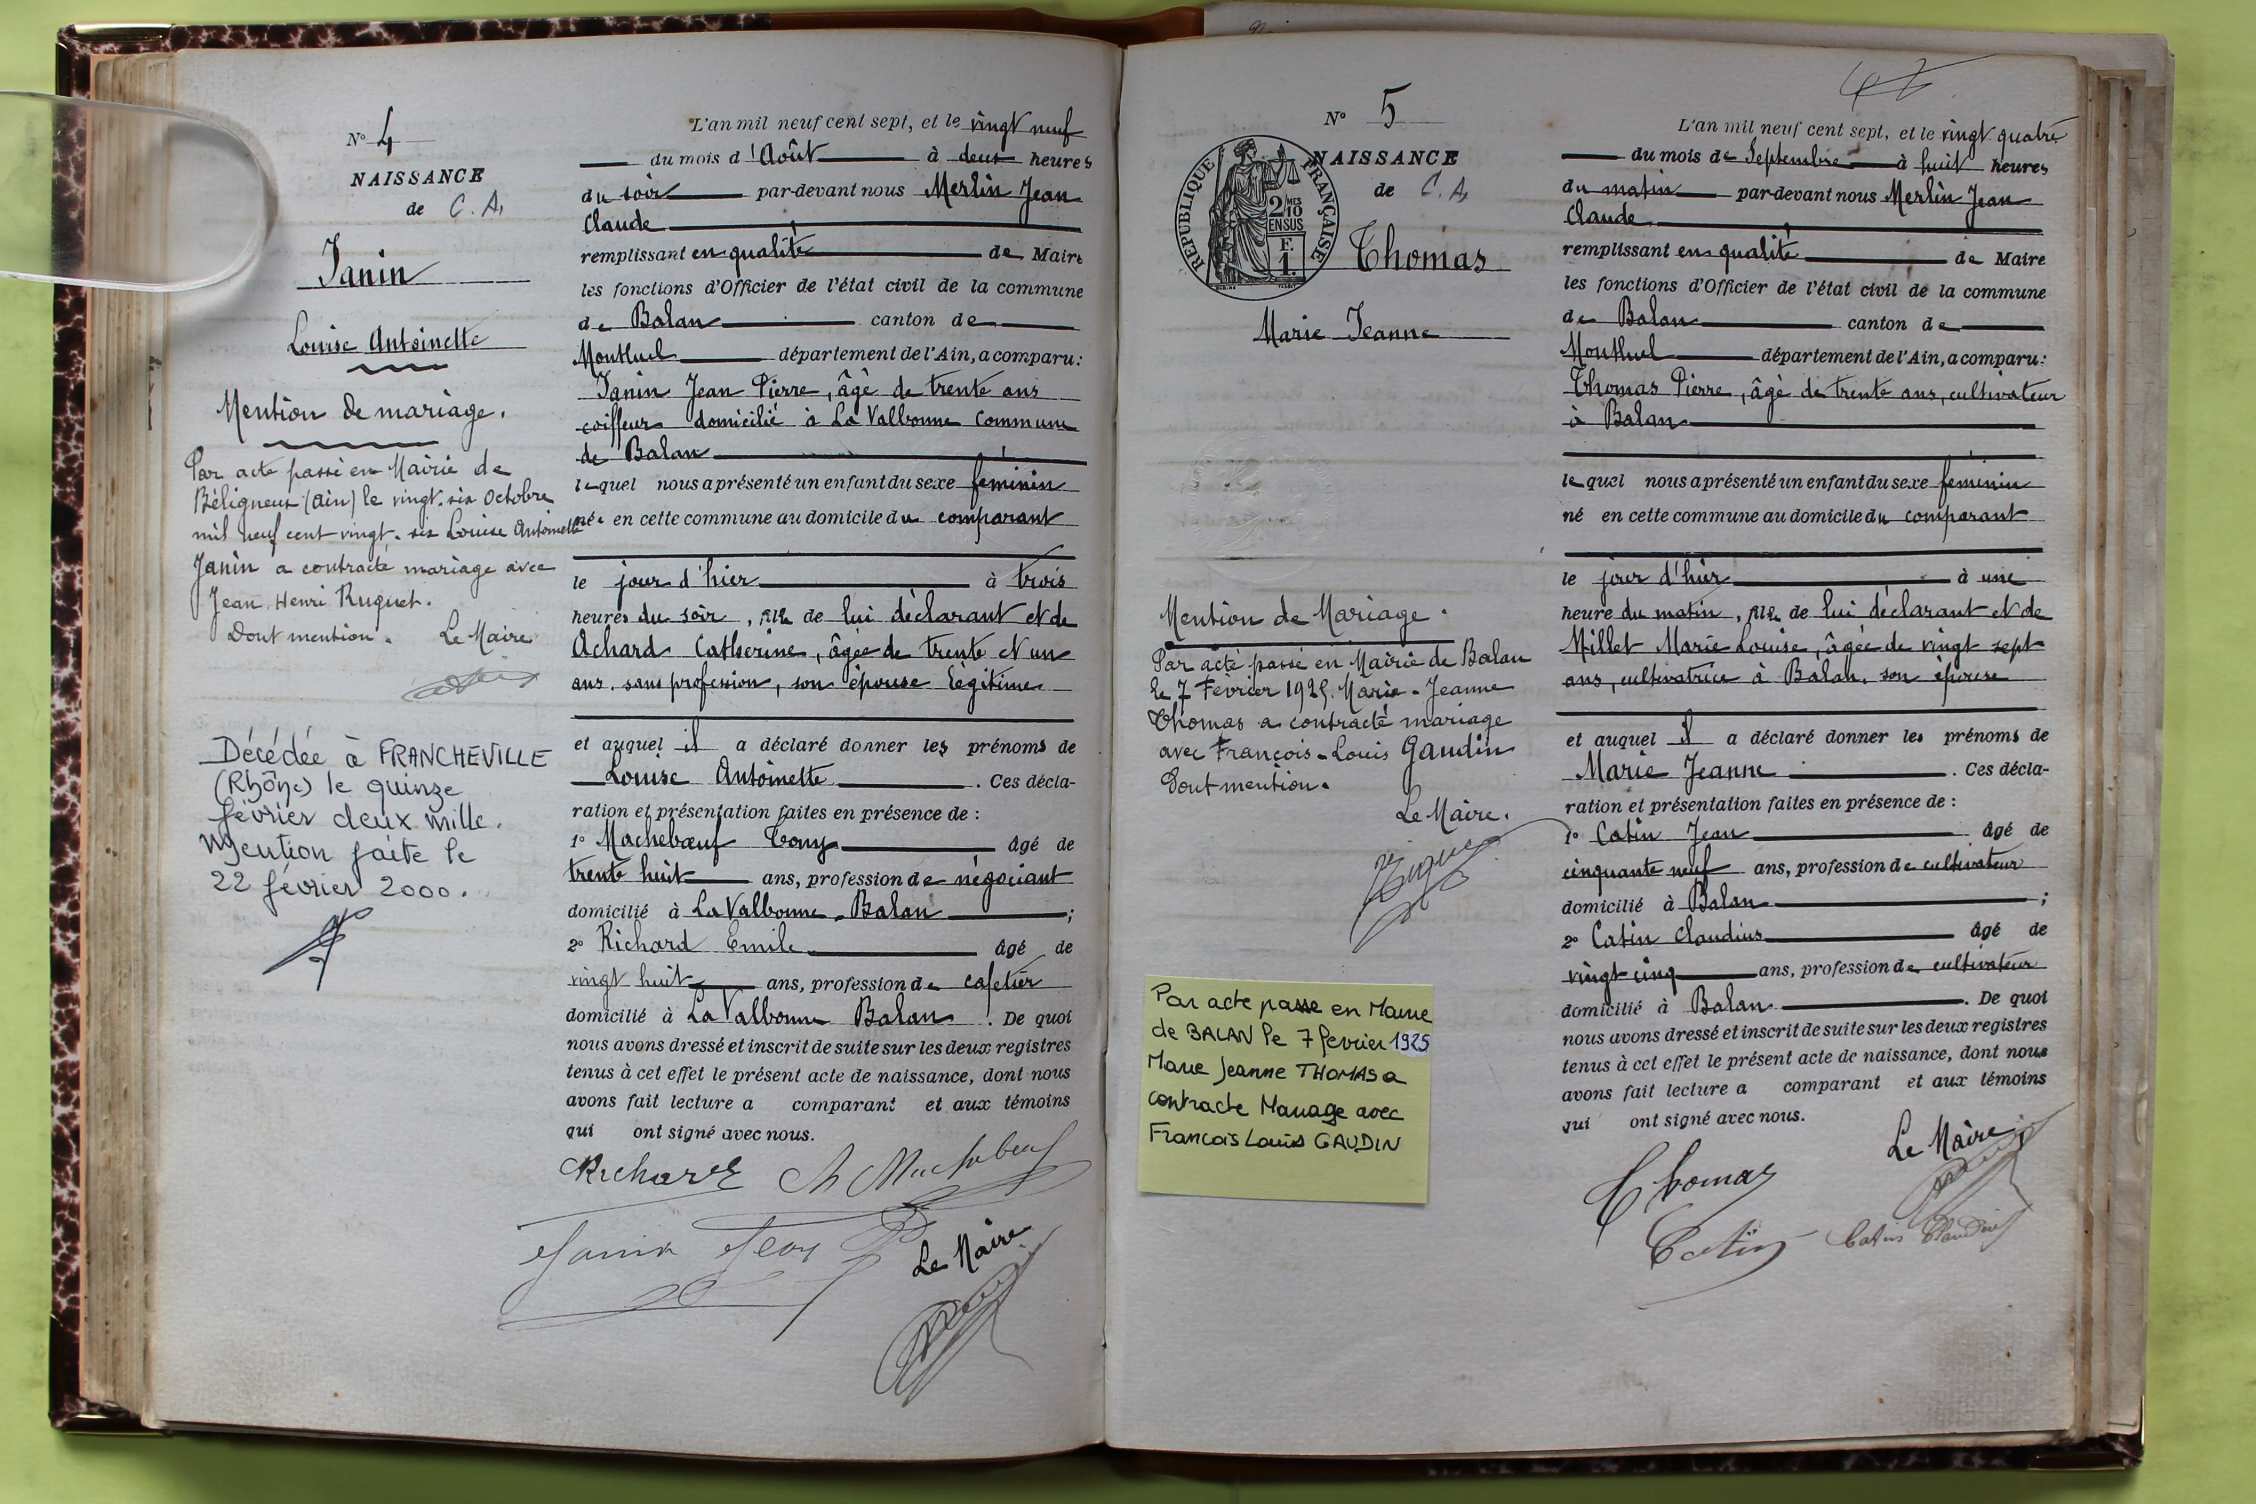 N° 4
NAISSANCE
de C. A.
Janin
Louise Antoinette
Mention de mariage.
Par acte passé en Mairie de
Béligneux (Ain) le vingt-six Octobre
mil neuf cent vingt-six Louise Antoinette
Janin a contracté mariage avec
Jean Henri Ruguet.
Dont mention. Le Maire
Décédée à FRANCHEVILLE
(Rhône) le quinze
février deux mille.
Mention faite le
22 février 2000.
L'an mil neuf cent sept, et le vingt neuf
du mois d'Août à deux heures
du soir par-devant nous Merlin Jean
Claude
remplissant en qualité de Maire
les fonctions d'Officier de l'état civil de la commune
de Balan canton de
Montluel département de l'Ain, a comparu:
Janin Jean Pierre, âgé de trente ans
coiffeur domicilié à La Valbonne commune
de Balan
lequel nous a présenté un enfant du sexe féminin
née en cette commune au domicile du comparant
le jour d'hier à trois
heures du soir, fille de lui déclarant et de
Achard Catherine, âgée de trente et un
ans, sans profession, son épouse légitime
et auquel il a déclaré donner les prénoms de
Louise Antoinette. Ces décla-
ration et présentation faites en présence de :
1° Machebœuf Tony âgé de
trente huit ans, profession de négociant
domicilié à La Valbonne Balan ;
2° Richard Emile âgé de
vingt huit ans, profession de cafetier
domicilié à La Valbonne Balan. De quoi
nous avons dressé et inscrit de suite sur les deux registres
tenus à cet effet le présent acte de naissance, dont nous
avons fait lecture a comparant et aux témoins
qui ont signé avec nous.
Richard Machebœuf
Janin Jean
Le Maire
N° 5
NAISSANCE
de C. A.
RÉPUBLIQUE FRANÇAISE
2 MES 10 EN SUS
F. 1.
Thomas
Marie Jeanne
Mention de Mariage.
Par acte passé en Mairie de Balan
le 7 Février 1925. Marie-Jeanne
Thomas a contracté mariage
avec François-Louis Gaudin
Dont mention.
Le Maire.
Par acte passe en Mairie
de BALAN le 7 fevrier 1925
Marie Jeanne THOMAS a
contracte Mariage avec
Francois Louis GAUDIN
L'an mil neuf cent sept, et le vingt quatre
du mois de Septembre à huit heures
du matin par-devant nous Merlin Jean
Claude
remplissant en qualité de Maire
les fonctions d'Officier de l'état civil de la commune
de Balan canton de
Montluel département de l'Ain, a comparu:
Thomas Pierre, âgé de trente ans, cultivateur
à Balan
lequel nous a présenté un enfant du sexe féminin
né en cette commune au domicile du comparant
le jour d'hier à une
heure du matin, fille de lui déclarant et de
Millet Marie Louise, âgée de vingt sept
ans, cultivatrice à Balan, son épouse
et auquel il a déclaré donner les prénoms de
Marie Jeanne. Ces décla-
ration et présentation faites en présence de :
1° Catin Jean âgé de
cinquante neuf ans, profession de cultivateur
domicilié à Balan ;
2° Catin Claudius âgé de
vingt-cinq ans, profession de cultivateur
domicilié à Balan. De quoi
nous avons dressé et inscrit de suite sur les deux registres
tenus à cet effet le présent acte de naissance, dont nous
avons fait lecture a comparant et aux témoins
qui ont signé avec nous.
Le Maire
Thomas
Catin Catin Claudius